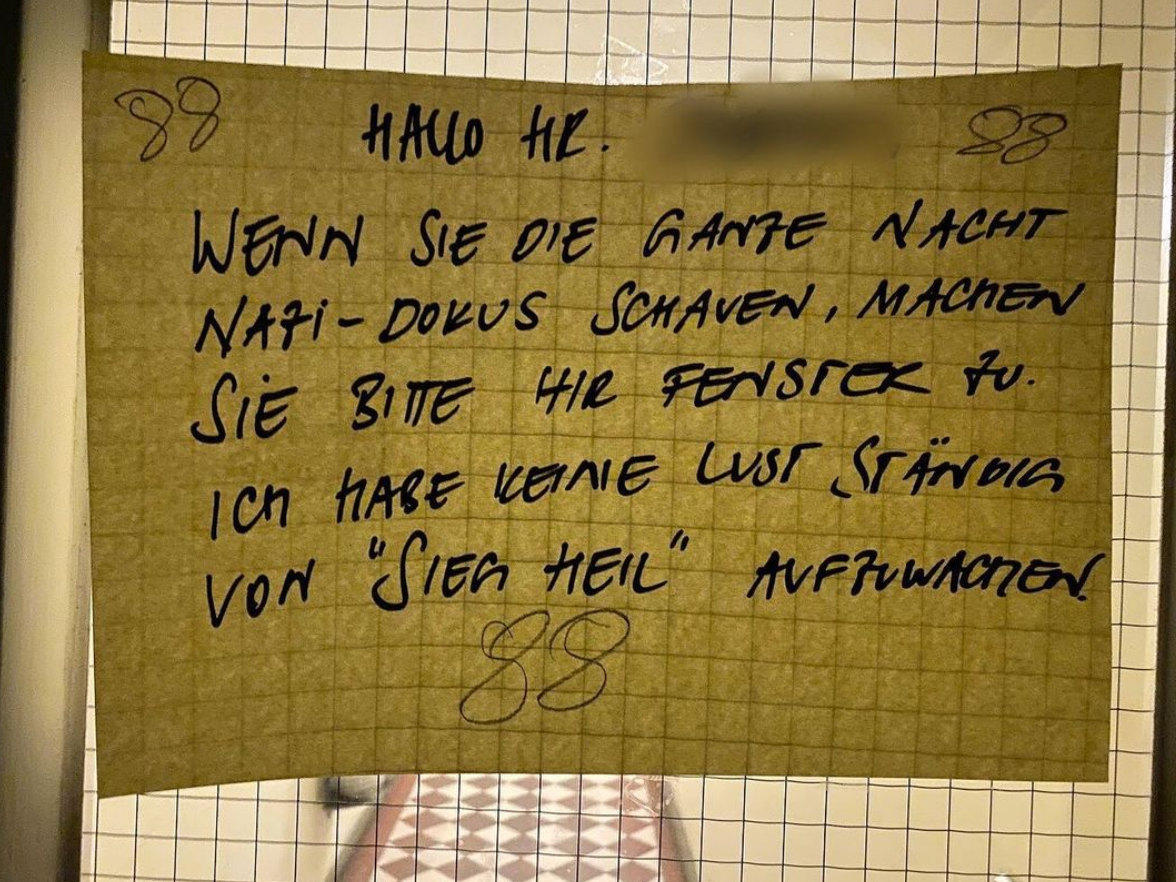 88 HALLO HR. 88
WENN SIE DIE GANZE NACHT
NAZI-DOKUS SCHAUEN, MACHEN
SIE BITTE IHR FENSTER ZU.
ICH HABE KEINE LUST STÄNDIG
VON "SIEG HEIL" AUFZUWACHEN.
88